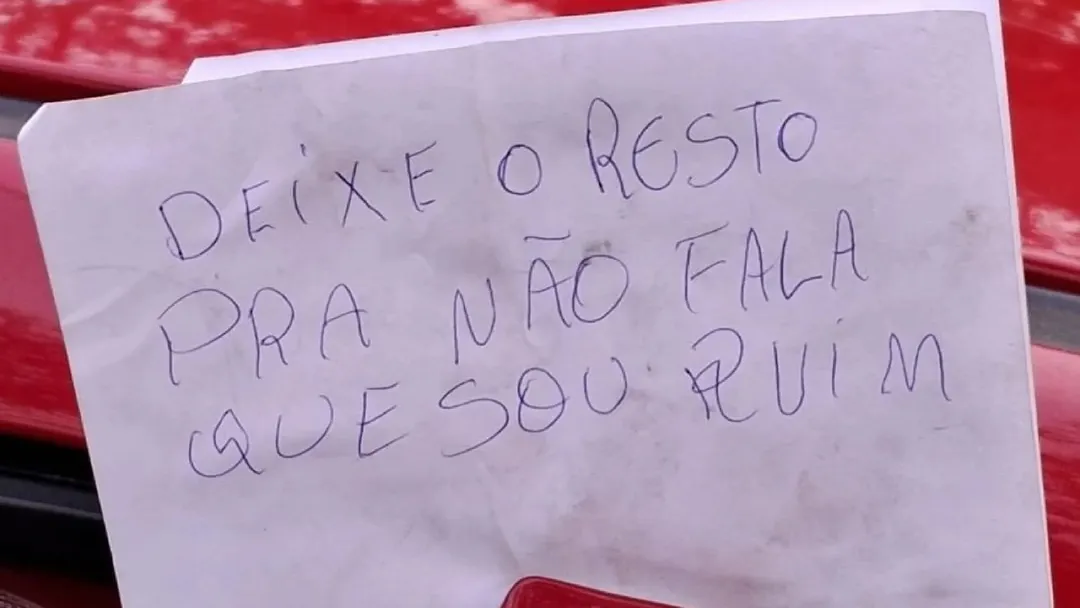 DEIXE O RESTO
PRA NÃO FALA
QUE SOU RUIM